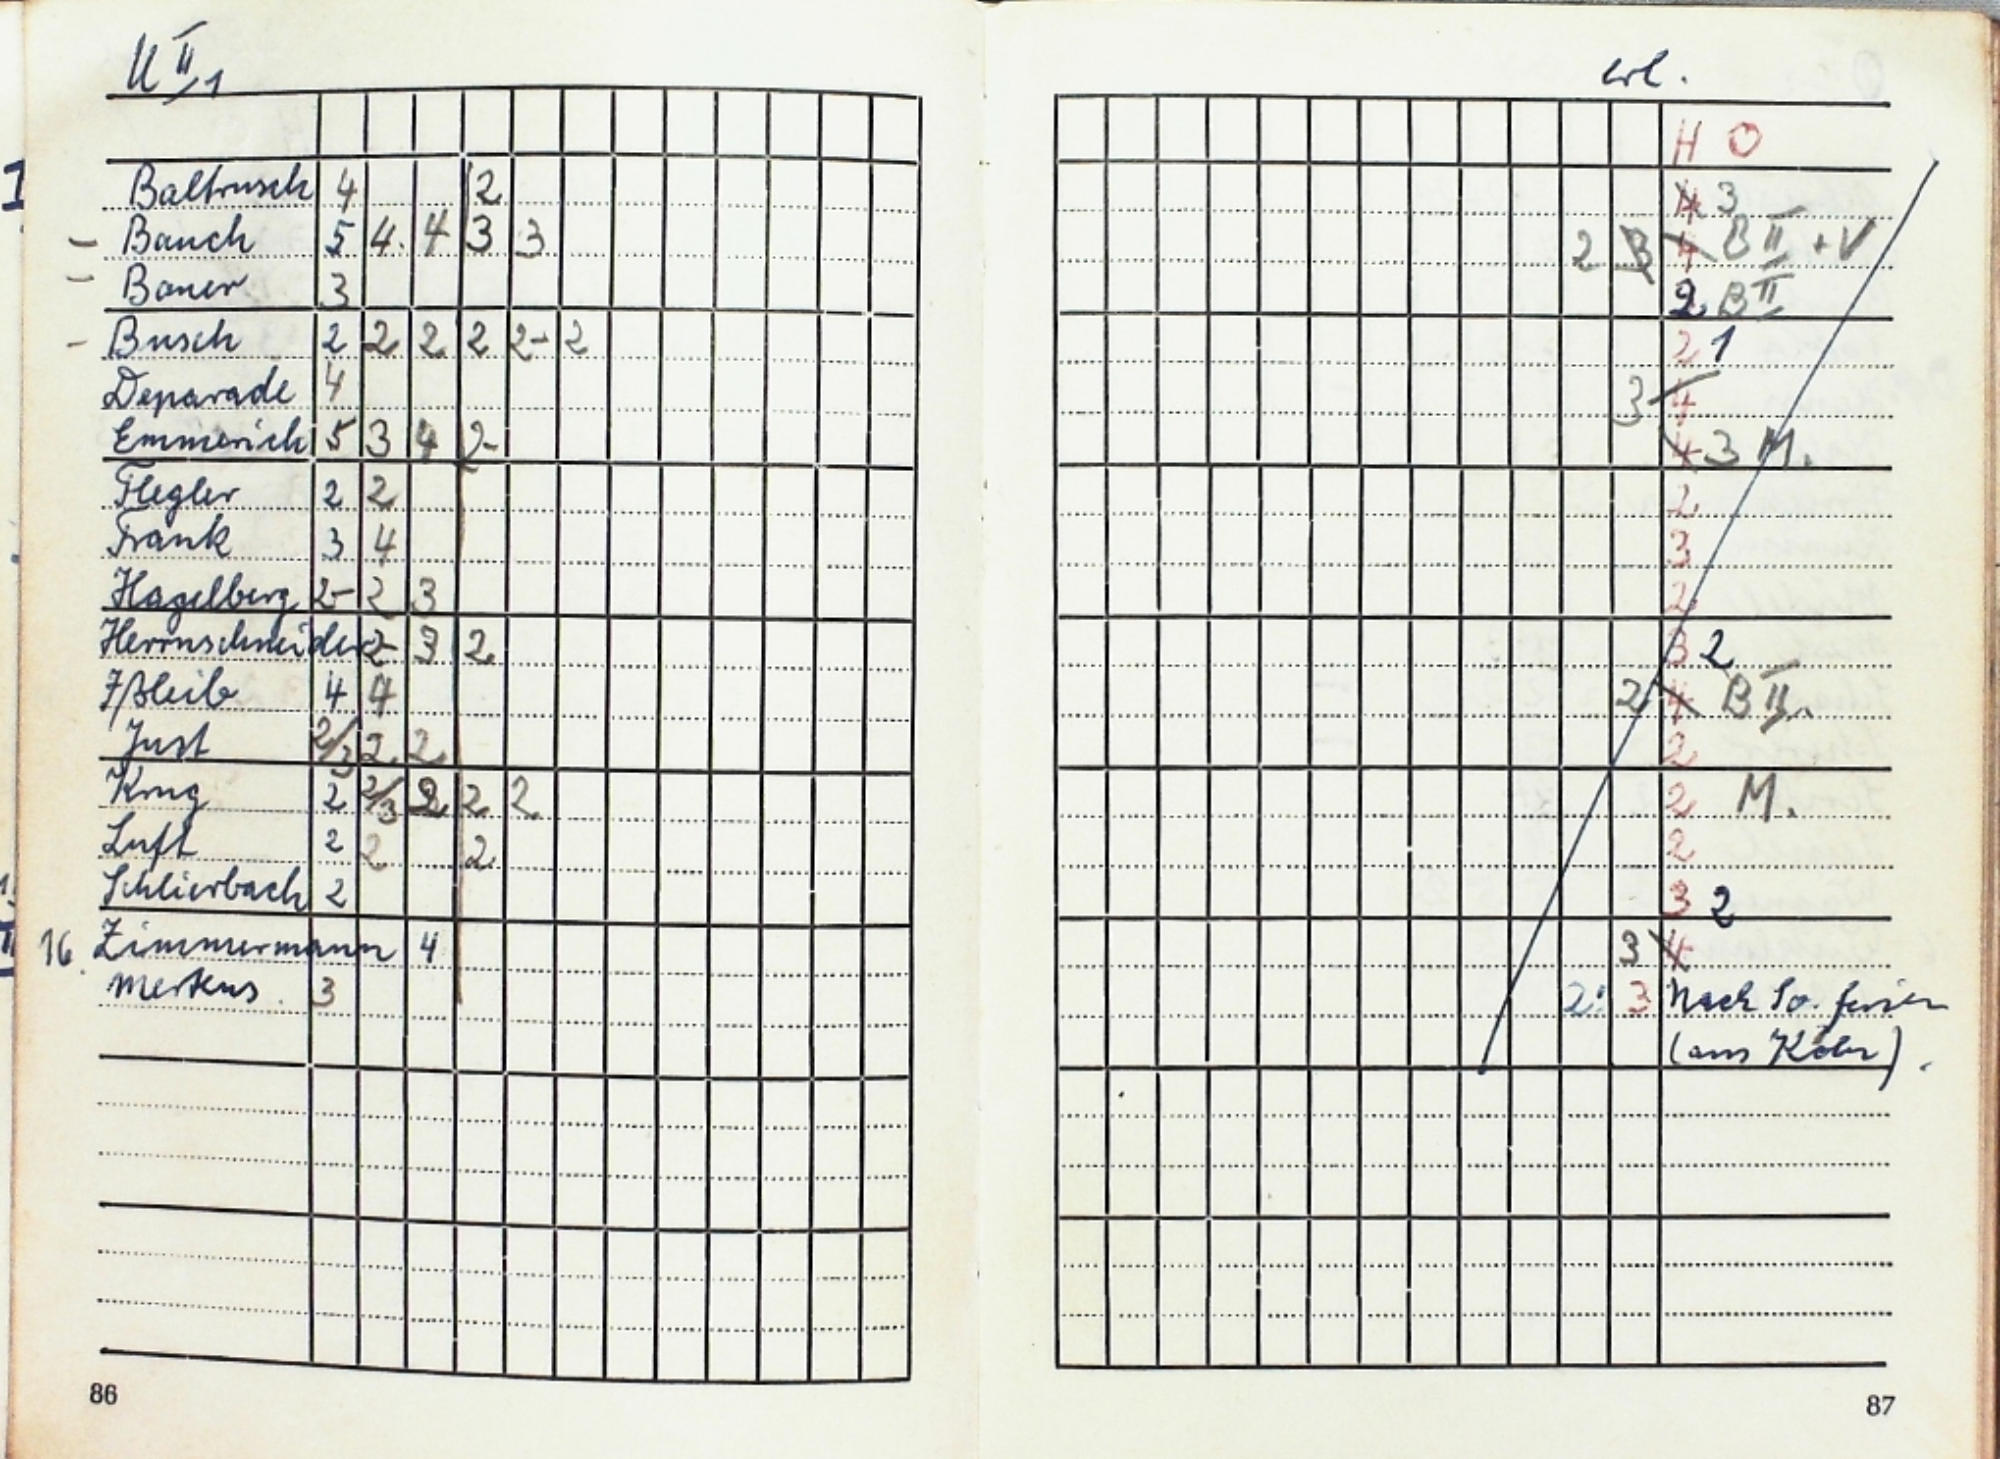 U II/1
Baltrusch 4 2
– Bauch 5 4. 4 3 3
– Bauer 3
– Busch 2 2 2 2 2- 2
Deparade 4
Emmerich 5 3 4 2-
Flegler 2 2
Frank 3 4
Hagelberg 2- 2 3
Herrnschneider 2- 3 2
Ißleib 4 4
Just 2/3 2 2
Krug 2 2/3 2 2 2
Luft 2 2 2
Schlierbach 2
16. Zimmermann 4
Merkus. 3
86
erl.
H O
4 3
2 3 4 B II + V
2 B II
2 1
3 4
4 3 M.
2
3
2
3 2
2 4 B II.
2
2 M.
2
3 2
3 4
2: 3 Nach So. ferien
(aus Köln).
87